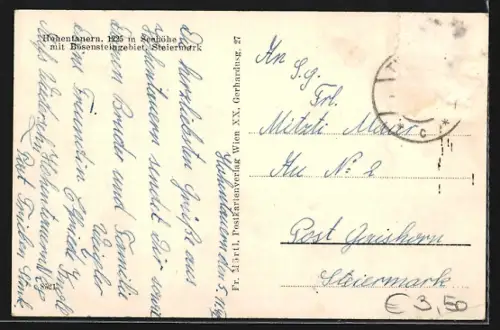 Hohentauern, 1265 m Seehöhe
mit Bösensteingebiet, Steiermark
Die herzlichsten Grüße aus
Hohentauern sendet Dir samt
deinem Bruder und Familie
deine Freundin
Auf Wiedersehn Hohentauern
Post Trieben
Hohentauern am 5.
Fr. Märtl, Postkartenverlag Wien XX, Gerhardusg. 27
An
S.g.
Frl.
Mitzti Maier
Au № 2
Post Gaishorn
Steiermark
C
€ 3,50